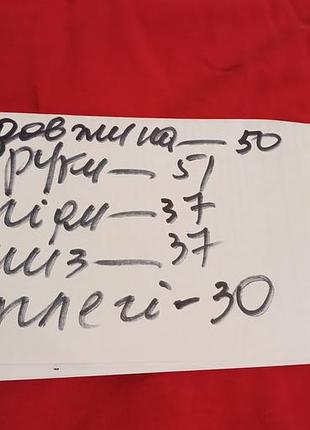 довжина — 50
руки — 51
піди — 37
низ — 37
плечі - 30